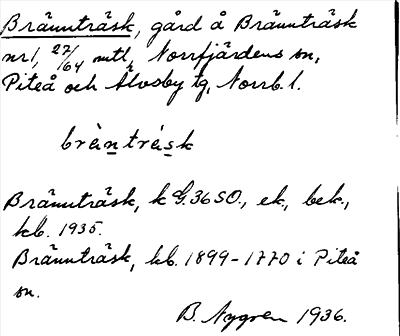 Brännträsk, gård å Brännträsk
nr 1, 27/64 mtl, Norrfjärdens sn,
Piteå och Älvsby tg, Norrb. l.
brän̲trás̲k
Brännträsk, k G. 36 SO., ek, bek.,
kb. 1935.
Brännträsk, kb. 1899-1770 i Piteå
sn.
B. Nygren 1936.